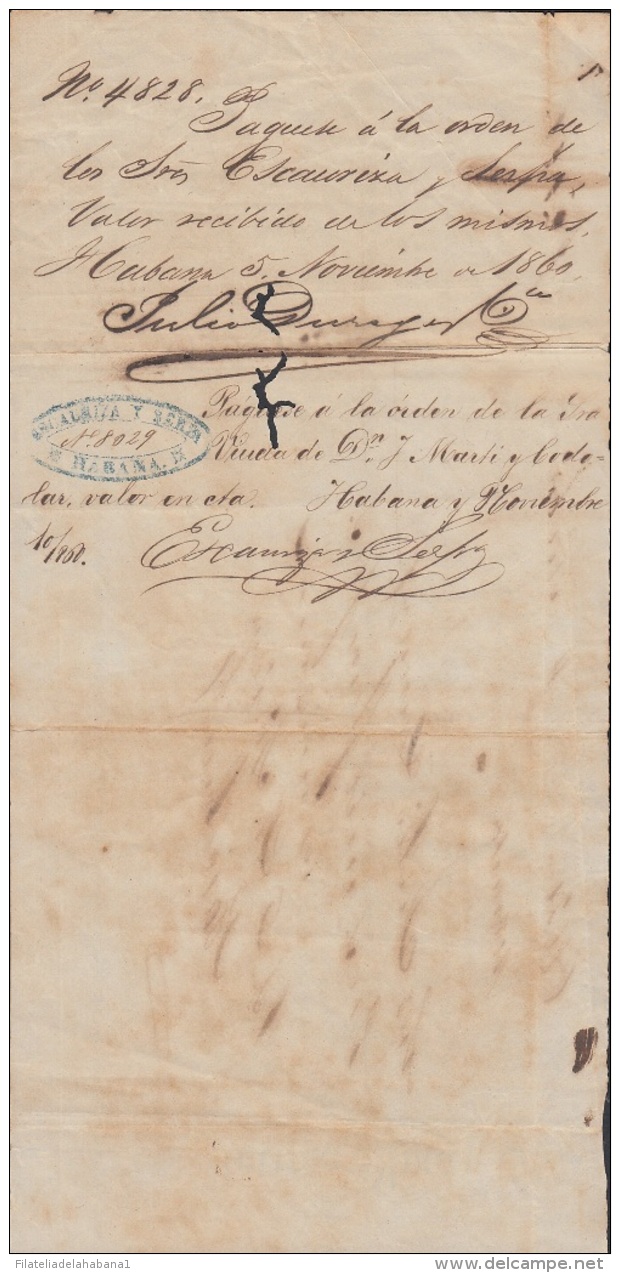 No. 4828.
Páguese á la orden de
los Srs Escauriza y Serpa,
Valor recibido de los mismos,
Habana 5, Noviembre de 1860,
Julio Durege y Ca
Páguese á la órden de la Sra
ESCAURIZA Y SERPA
No. 8029
HABANA.
Viuda de Dn. J Marti y Codo-
lar, valor en cta. Habana y Noviembre
10/860.
Escauriza y Serpa
Filateliadelahabana1
delcampe.net